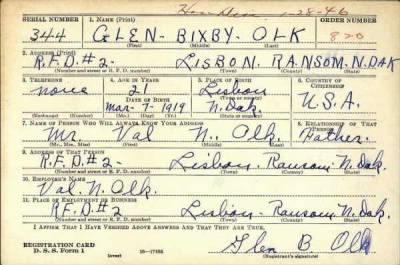 1-28-46
SERIAL NUMBER 1. NAME (Print) ORDER NUMBER
344 GLEN - BIXBY - OLK 820
(First) (Middle) (Last)
2. ADDRESS (Print)
R.F.D.#2- LISBON RANSOM N.DAK
(Number and street or R. F. D. number) (Town) (County) (State)
3. TELEPHONE 4. AGE IN YEARS 5. PLACE OF BIRTH 6. COUNTRY OF CITIZENSHIP
none 21 Lisbon
DATE OF BIRTH (Town or county)
Mar-7-1919 N.Dak. U.S.A.
(Mo.) (Day) (Yr.) (State or country)
7. NAME OF PERSON WHO WILL ALWAYS KNOW YOUR ADDRESS 8. RELATIONSHIP OF THAT PERSON
Mr. Val N. Olk. Father.
(Mr., Mrs., Miss) (First) (Middle) (Last)
9. ADDRESS OF THAT PERSON
R.F.D.#2- Lisbon, Ransom N.Dak.
(Number and street or R. F. D. number) (Town) (County) (State)
10. EMPLOYER'S NAME
Val. N. Olk.
11. PLACE OF EMPLOYMENT OR BUSINESS
R.F.D.#2 Lisbon- Ransom N.Dak.
(Number and street or R. F. D. number) (Town) (County) (State)
I AFFIRM THAT I HAVE VERIFIED ABOVE ANSWERS AND THAT THEY ARE TRUE.
REGISTRATION CARD
D. S. S. Form 1 Glen B Olk
(over) (Registrant's signature)